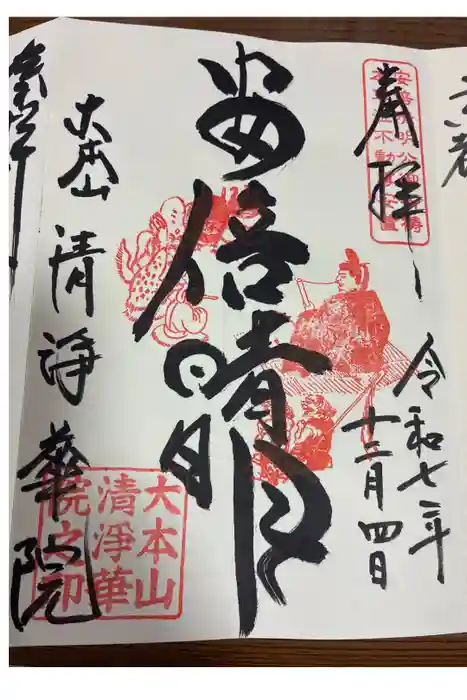 奉拝
令和七年
十二月四日
安倍晴明
大本山
清浄華院
大本山
清淨華
院之印